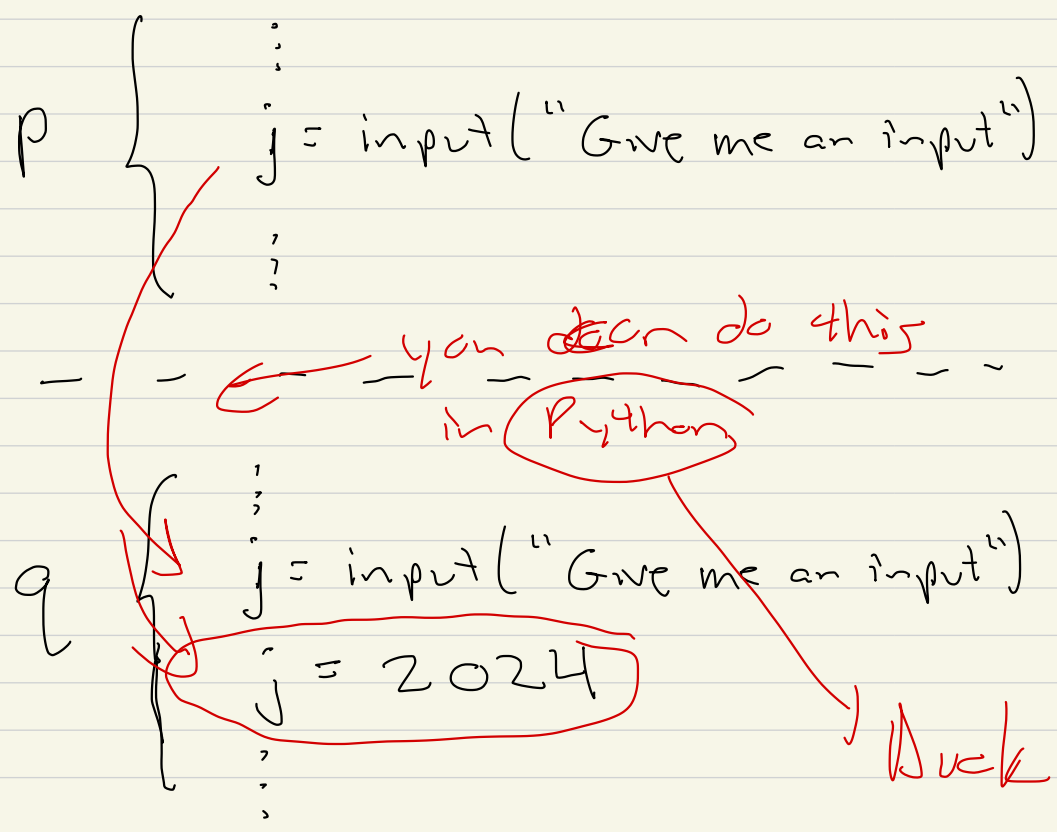 p
j = input("Give me an input")
you can do this
in Python
q
j = input("Give me an input")
j = 2024
Duck